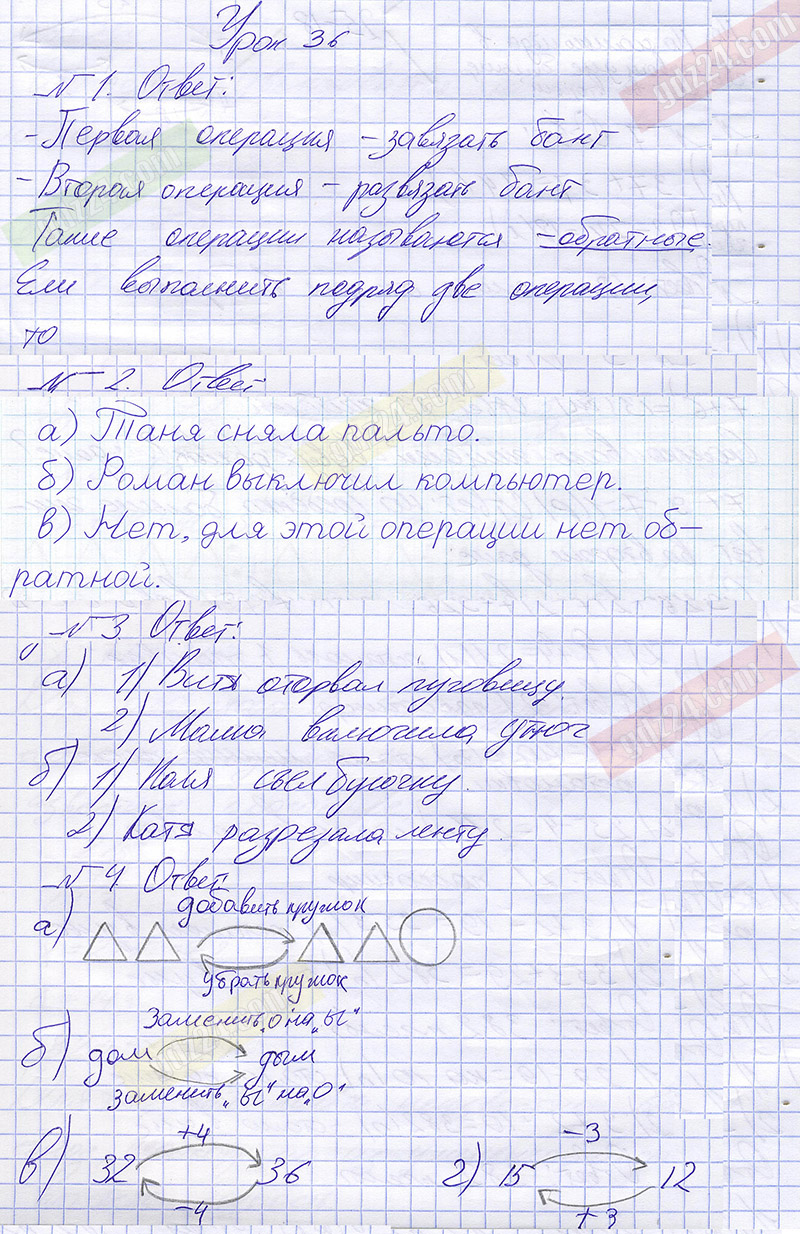 Урок 36
№ 1. Ответ:
- Первая операция - завязать бант
- Вторая операция - развязать бант
Такие операции называются - обратные.
Если выполнить подряд две операции,
то
№ 2. Ответ
а) Таня сняла пальто.
б) Роман выключил компьютер.
в) Нет, для этой операции нет об-
ратной.
№ 3 Ответ:
а) 1) Витя оторвал пуговицу
2) Мама включила утюг
б) 1) Коля съел булочку.
2) Катя разрезала ленту.
№ 4 Ответ
добавить кружок
а)
убрать кружок
Заменить „о" на „ы"
б) дом дым
заменить „ы" на „о"
+4 -3
в) 32 36 г) 15 12
-4 +3
gdz24.com
gdz24.com
gdz24.com
gdz24.com